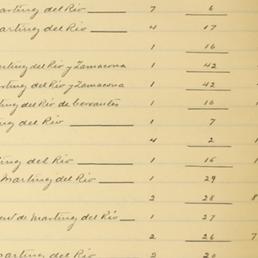 Martinez del Rio 7 6
Martinez del Rio 4 17
1 16
Martinez del Rio y Zamacona 1 42
Martinez del Rio y Zamacona 1 42
del Rio de Cervantes 1 10
del Rio 1 7
4 2
del Rio 1 15
Martinez del Rio 1 29
2 28
de Martinez del Rio 1 27
2 26 7
Martinez del Rio 2 20